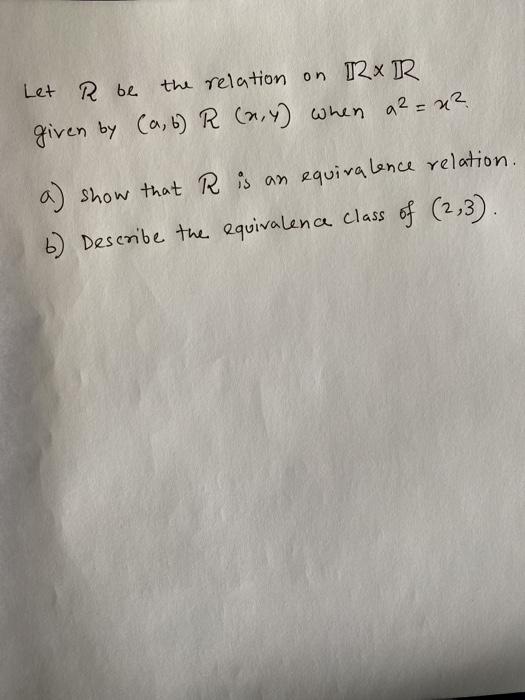 Let R be the relation on ℝ x ℝ
given by (a,b) R (x,y) when a² = x².
a) show that R is an equivalence relation.
b) Describe the equivalence class of (2,3).